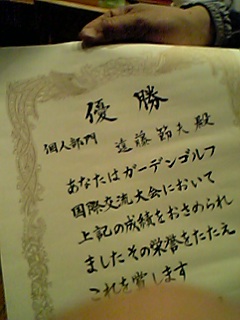 優勝
個人部門 遠藤節夫殿
あなたはガーデンゴルフ
国際交流大会において
上記の成績をおさめられ
ましたその栄誉をたたえ
これを賞します